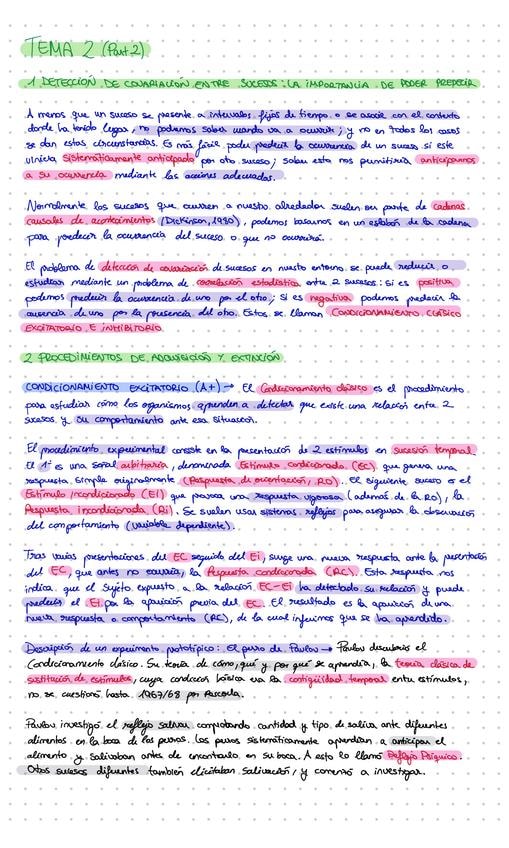 TEMA 2 (Part 2)
1 DETECCIÓN DE COVARIACIÓN ENTRE SUCESOS: LA IMPORTANCIA DE PODER PREDECIR
A menos que un suceso se presente a intervalos fijos de tiempo o se asocie con el contexto
donde ha tenido lugar, no podremos saber cuando va a ocurrir; y no en todos los casos
se dan estas circunstancias. Es más fácil poder predecir la ocurrencia de un suceso si este
viniera sistemáticamente anticipado por otro suceso; saber esto nos permitiría anticiparnos
a su ocurrencia mediante las acciones adecuadas.
Normalmente los sucesos que ocurren a nuestro alrededor suelen ser parte de cadenas
causales de acontecimientos (Dickinson, 1980), podemos basarnos en un eslabón de la cadena
para predecir la ocurrencia del suceso o que no ocurrirá.
El problema de detección de covariación de sucesos en nuestro entorno se puede reducir o
estudiar mediante un problema de correlación estadística entre 2 sucesos: si es positiva
podemos predecir la ocurrencia de uno por el otro; si es negativa podemos predecir la
ausencia de uno por la presencia del otro. Estos se llaman CONDICIONAMIENTO CLÁSICO
EXCITATORIO E INHIBITORIO.
2 PROCEDIMIENTOS DE ADQUISICIÓN Y EXTINCIÓN
CONDICIONAMIENTO EXCITATORIO (A+) → El Condicionamiento clásico es el procedimiento
para estudiar cómo los organismos aprenden a detectar que existe una relación entre 2
sucesos y su comportamiento ante esa situación.
El procedimiento experimental consiste en la presentación de 2 estímulos en sucesión temporal.
El 1º es una señal arbitraria, denominada Estímulo condicionado (EC) que genera una
respuesta simple originalmente (Respuesta de orientación, RO). El siguiente suceso es el
Estímulo incondicionado (EI) que provoca una respuesta vigorosa (además de la RO), la
Respuesta incondicionada (Ri). Se suelen usar sistemas reflejos para asegurar la observación
del comportamiento (variable dependiente).
Tras varias presentaciones del EC seguido del Ei, surge una nueva respuesta ante la presentación
del EC, que antes no ocurría, la Respuesta condicionada (RC). Esta respuesta nos
indica que el sujeto expuesto a la relación EC-Ei ha detectado su relación y puede
predecir el Ei por la aparición previa del EC. El resultado es la aparición de una
nueva respuesta o comportamiento (RC), de la cual inferimos que se ha aprendido.
Descripción de un experimento prototípico: El perro de Pavlov → Pavlov descubrió el
Condicionamiento clásico. Su teoría de cómo, qué y por qué se aprendía, la teoría clásica de
sustitución de estímulos, cuya condición básica era la contigüidad temporal entre estímulos,
no se cuestionó hasta 1967/68 por Rescorla.
Pavlov investigó el reflejo salivar comprobando cantidad y tipo de saliva ante diferentes
alimentos en la boca de los perros. Los perros sistemáticamente aprendían a anticipar el
alimento y salivaban antes de encontrarlo en su boca. A esto lo llamó Reflejo Psíquico.
Otros sucesos diferentes también elicitaban salivación, y comenzó a investigar.